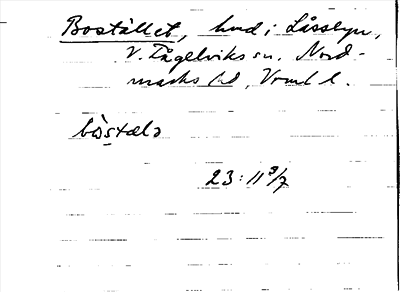 Bostället, hmd i Låssbyn,
V. Fågelviks sn. Nord-
marks hd, Vrml l.
bòstælə
23: 11 3/7